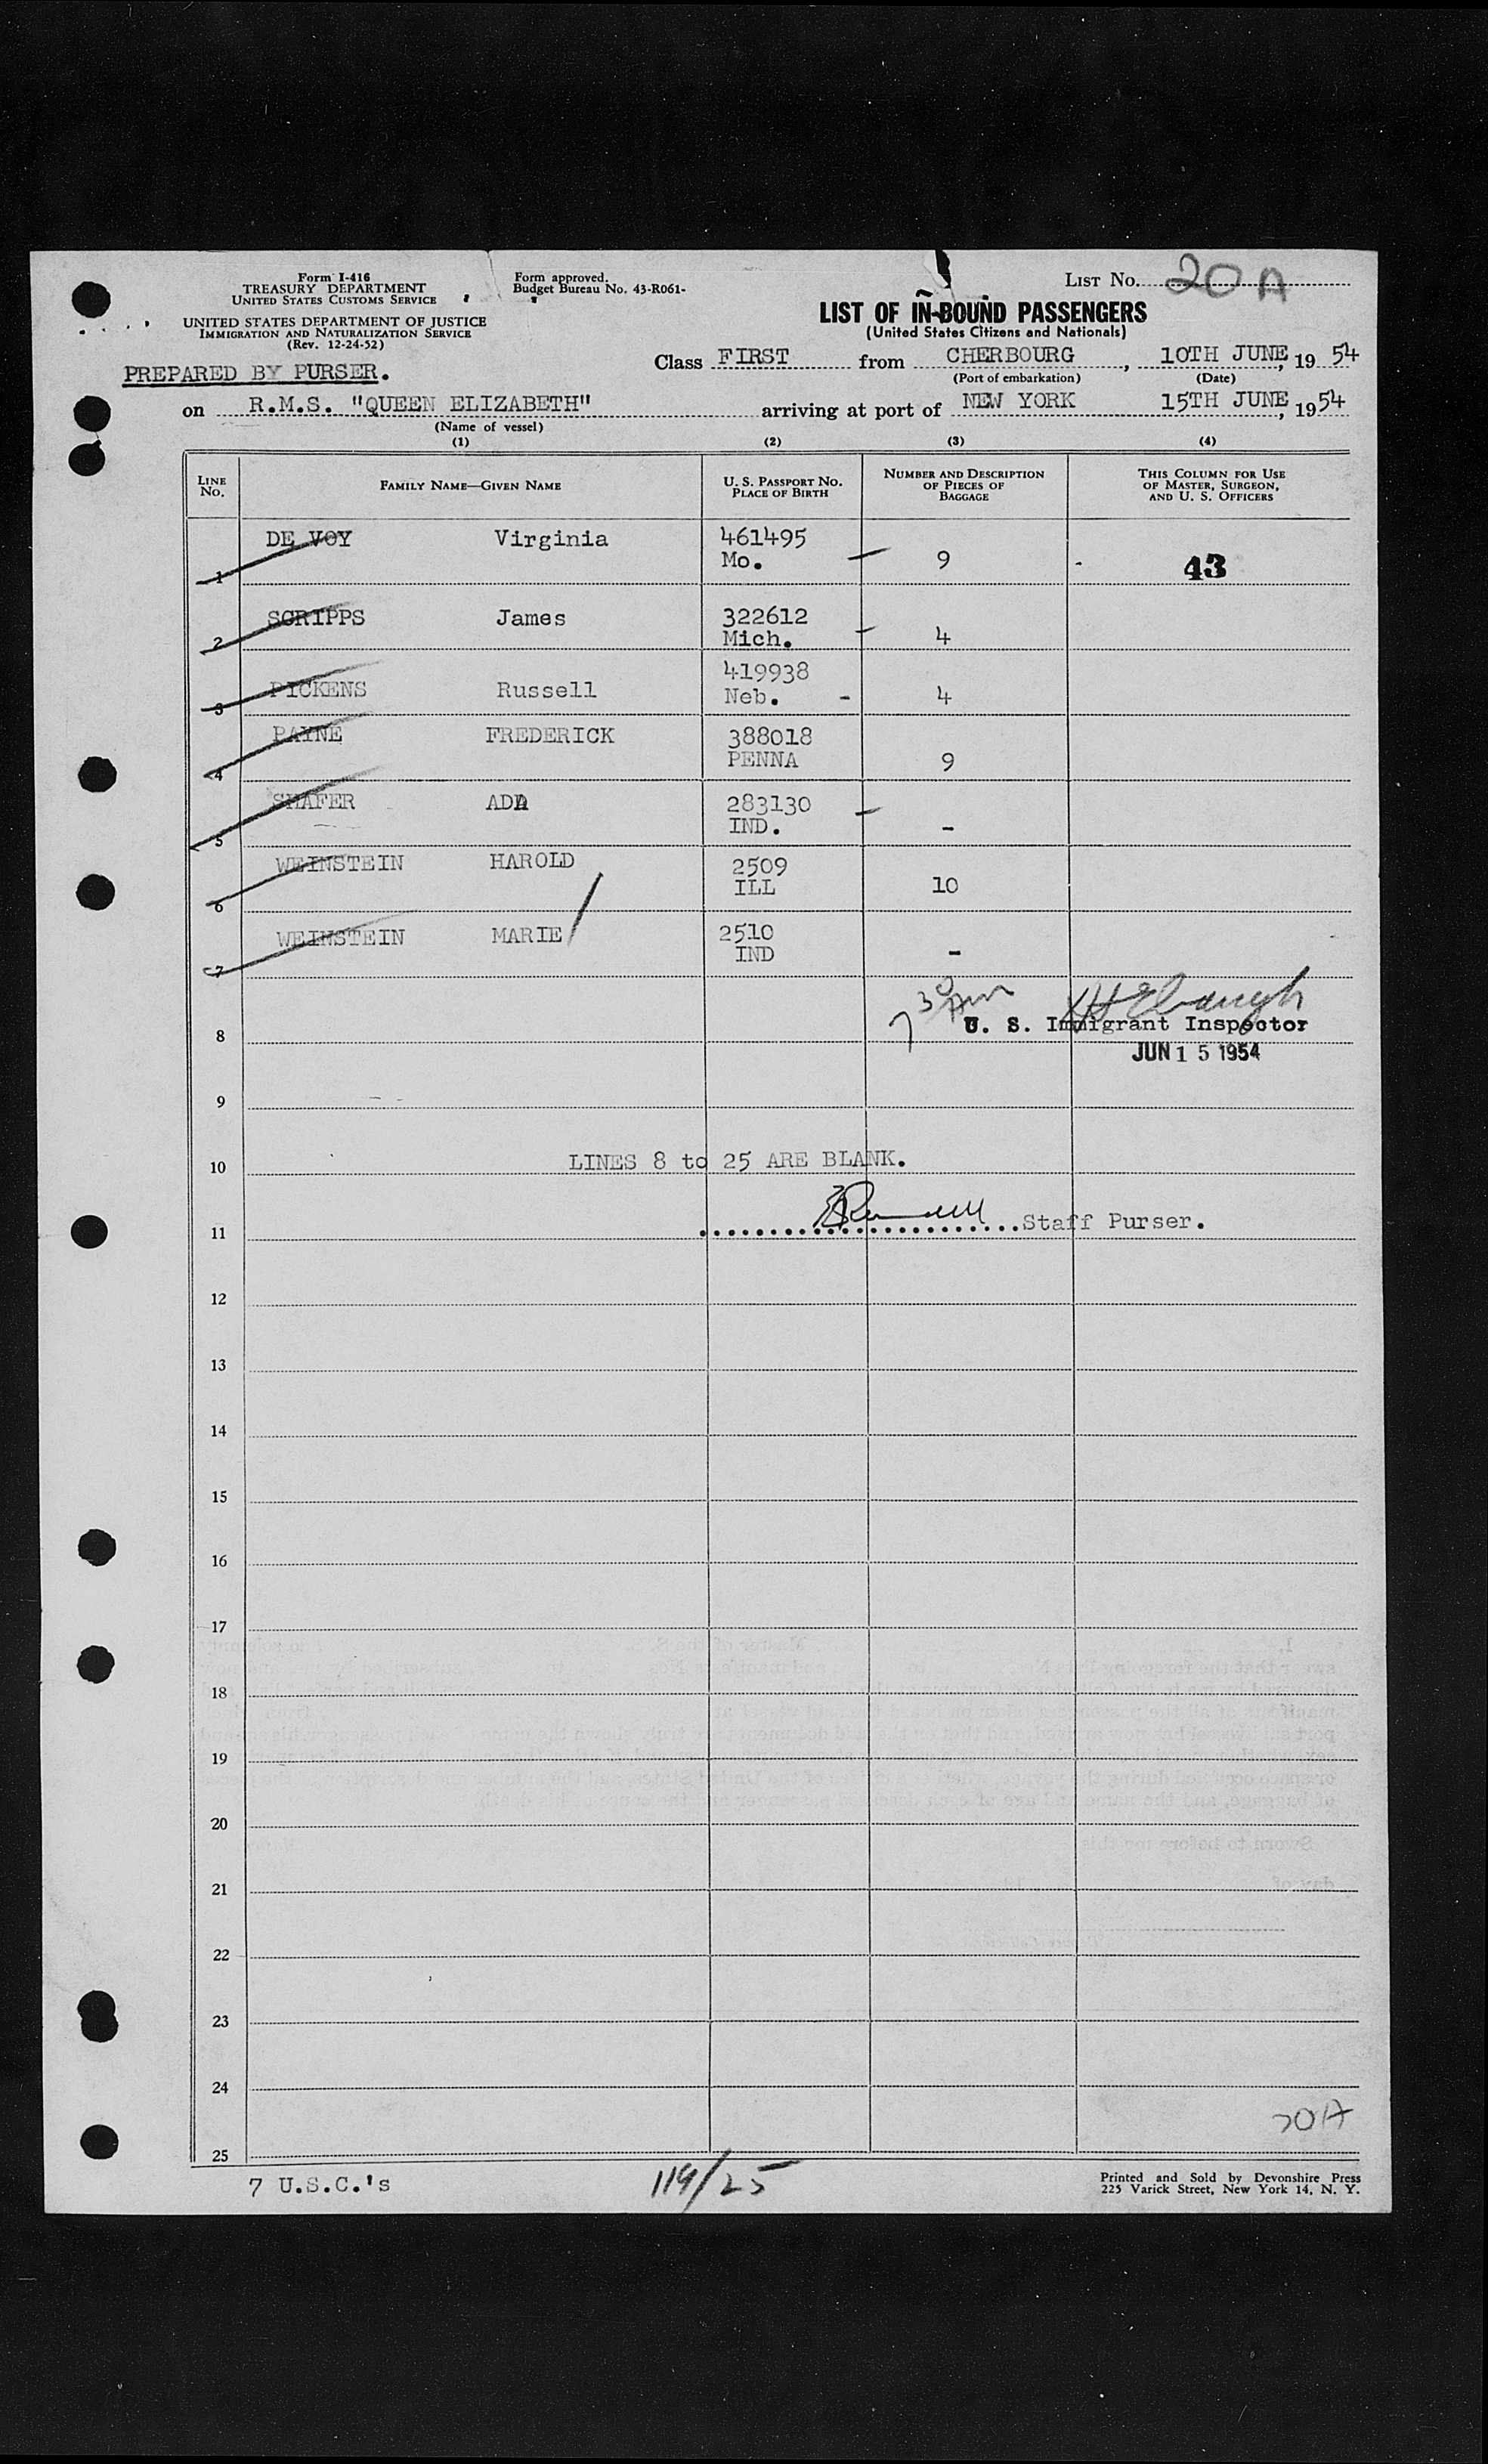 Form I-416
TREASURY DEPARTMENT
UNITED STATES CUSTOMS SERVICE
UNITED STATES DEPARTMENT OF JUSTICE
IMMIGRATION AND NATURALIZATION SERVICE
(Rev. 12-24-52)
PREPARED BY PURSER.
Form approved.
Budget Bureau No. 43-R061-
LIST No. 20 A
LIST OF IN-BOUND PASSENGERS
(United States Citizens and Nationals)
Class FIRST from CHERBOURG, 10TH JUNE, 19 54
(Port of embarkation) (Date)
on R.M.S. "QUEEN ELIZABETH" arriving at port of NEW YORK 15TH JUNE, 1954
(Name of vessel)
(1) (2) (3) (4)
LINE No. FAMILY NAME—GIVEN NAME U. S. PASSPORT NO. PLACE OF BIRTH NUMBER AND DESCRIPTION OF PIECES OF BAGGAGE THIS COLUMN FOR USE OF MASTER, SURGEON, AND U. S. OFFICERS
1 DE VOY Virginia 461495 Mo. — 9 - 43
2 SCRIPPS James 322612 Mich. - 4
3 PICKENS Russell 419938 Neb. - 4
4 PAYNE FREDERICK 388018 PENNA 9
5 SHAFER ADA 283130 IND. — -
6 WEINSTEIN HAROLD 2509 ILL 10
7 WEINSTEIN MARIE 2510 IND -
7 30 Am
U. S. Immigrant Inspector
8
JUN 15 1954
9
10 LINES 8 to 25 ARE BLANK.
11 Staff Purser.
12
13
14
15
16
17
18
19
20
21
22
23
24
20A
25
7 U.S.C.'s
119/25
Printed and Sold by Devonshire Press
225 Varick Street, New York 14, N. Y.